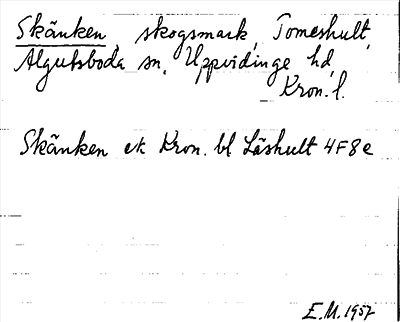 Skänken, skogsmark, Tomeshult,
Algutsboda sn, Uppvidinge hd,
Kron. l.
Skänken ek Kron. bl Låshult 4F8e
E.M. 1957